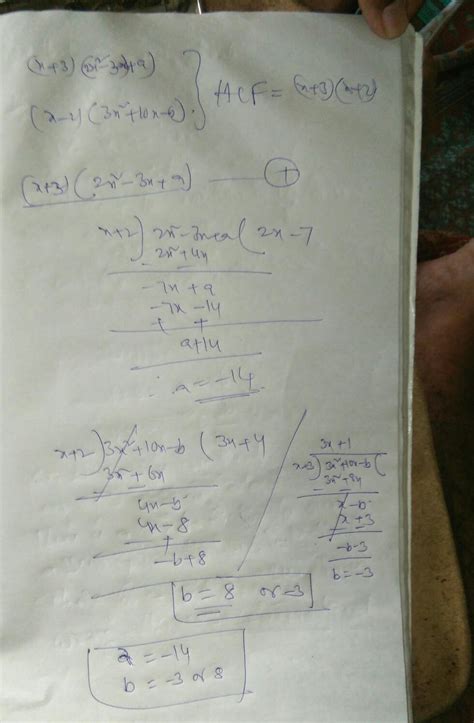 (x+3) (2x²-3x+a)
(x-2) (3x²+10x-b) } HCF = (x+3) (x+2)
(x+3) (2x²-3x+a) —— (+)
x+2) 2x²-3x+a ( 2x-7
2x²+4x
-7x+a
-7x-14
+ +
a+14
∴ a = -14
x+2) 3x²+10x-b ( 3x+4
3x²+6x
4x-b
4x-8
+
-b+8
3x+1
x+3) 3x²+10x-b (
3x²+9x
x-b
x+3
-b-3
b=-3
b = 8 or -3
a = -14
b = -3 or 8